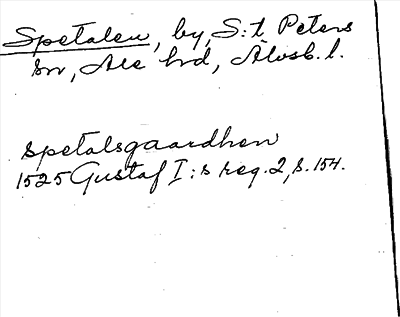 Spetalen, by, S:t Peters
sn, Ale hrd, Älvsb. l.
spetalsgaardhen
1525 Gustaf I:s reg. 2, s. 154.